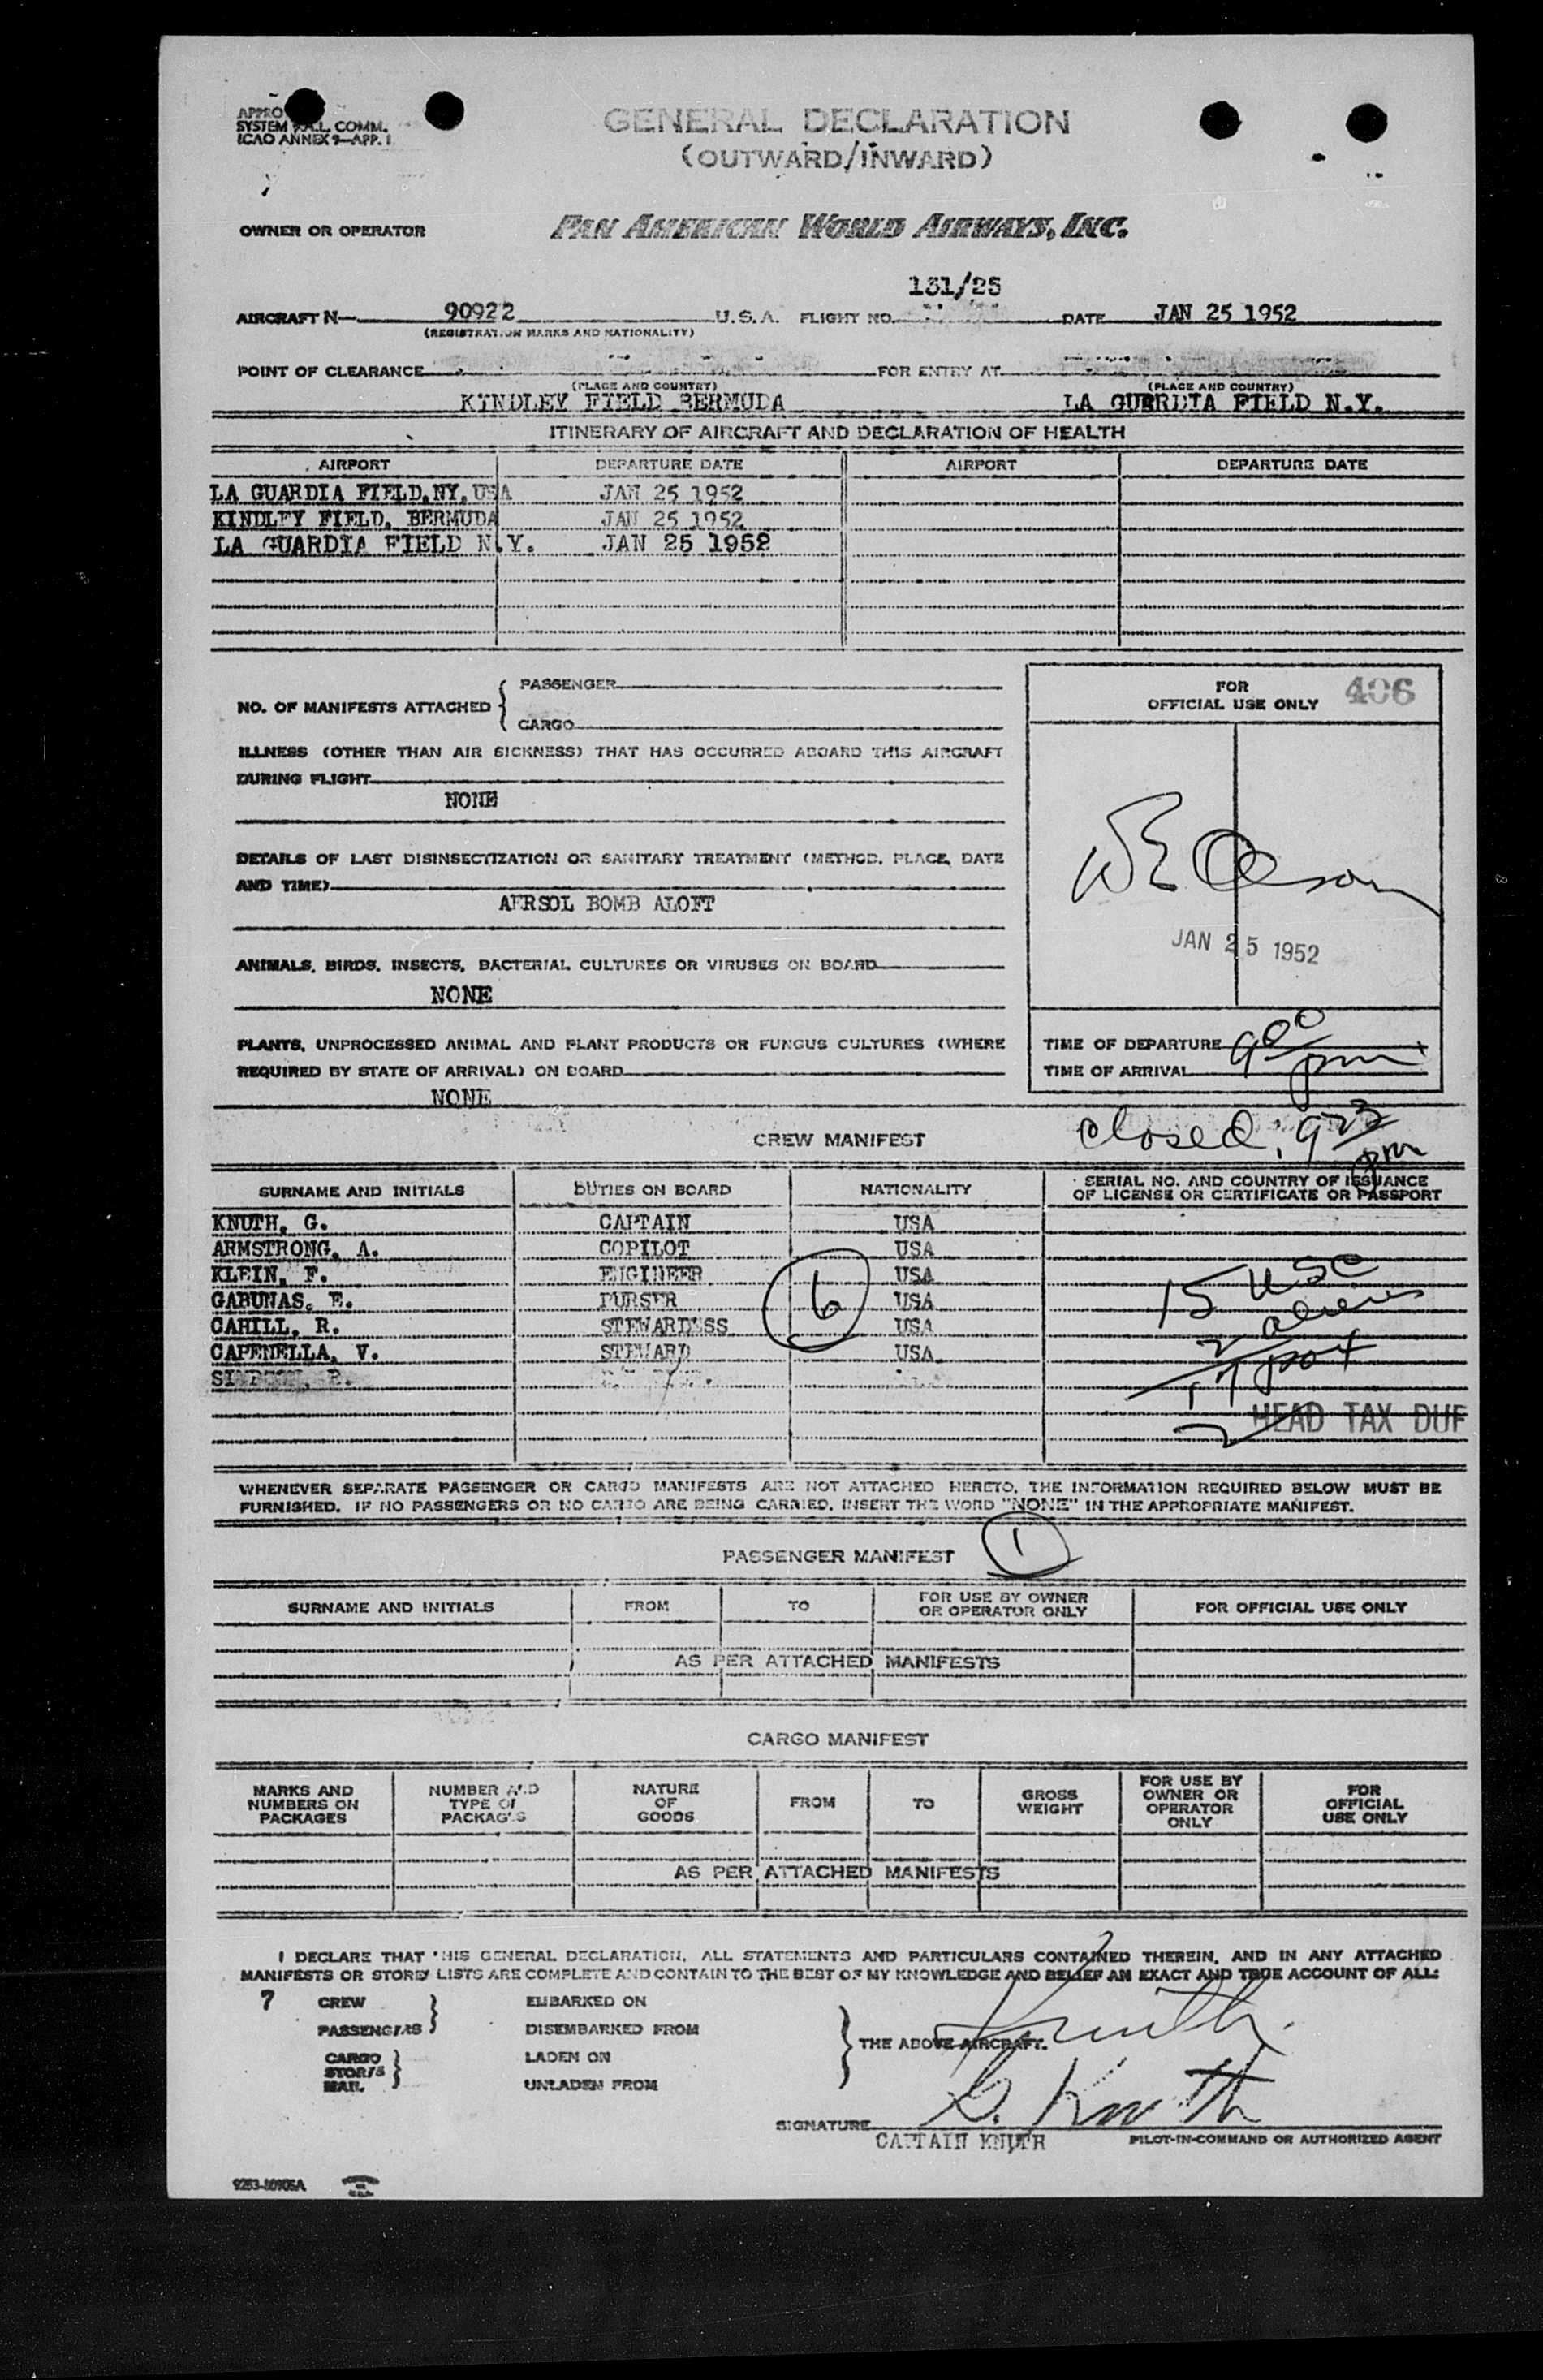 SYSTEM COMM.
ICAO ANNEX 9—APP. 1
GENERAL DECLARATION
(OUTWARD/INWARD)
OWNER OR OPERATOR PAN AMERICAN WORLD AIRWAYS, INC.
131/25
AIRCRAFT N— 90922 U.S.A. FLIGHT NO. DATE JAN 25 1952
(REGISTRATION MARKS AND NATIONALITY)
POINT OF CLEARANCE FOR ENTRY AT
(PLACE AND COUNTRY) (PLACE AND COUNTRY)
KINDLEY FIELD BERMUDA LA GUERDIA FIELD N.Y.
ITINERARY OF AIRCRAFT AND DECLARATION OF HEALTH
AIRPORT DEPARTURE DATE AIRPORT DEPARTURE DATE
LA GUARDIA FIELD,NY,USA JAN 25 1952
KINDLEY FIELD, BERMUDA JAN 25 1952
LA GUARDIA FIELD N.Y. JAN 25 1952
NO. OF MANIFESTS ATTACHED { PASSENGER
CARGO
FOR
OFFICIAL USE ONLY 406
ILLNESS (OTHER THAN AIR SICKNESS) THAT HAS OCCURRED ABOARD THIS AIRCRAFT
DURING FLIGHT
NONE
DETAILS OF LAST DISINSECTIZATION OR SANITARY TREATMENT (METHOD, PLACE, DATE
AND TIME)
AERSOL BOMB ALOFT
WE Olson
JAN 25 1952
ANIMALS, BIRDS, INSECTS, BACTERIAL CULTURES OR VIRUSES ON BOARD
NONE
PLANTS, UNPROCESSED ANIMAL AND PLANT PRODUCTS OR FUNGUS CULTURES (WHERE
REQUIRED BY STATE OF ARRIVAL) ON BOARD
NONE
TIME OF DEPARTURE 9 00 pm
TIME OF ARRIVAL
closed, 9 23 pm
CREW MANIFEST
SURNAME AND INITIALS DUTIES ON BOARD NATIONALITY SERIAL NO. AND COUNTRY OF ISSUANCE
OF LICENSE OR CERTIFICATE OR PASSPORT
KNUTH, G. CAPTAIN USA
ARMSTRONG, A. COPILOT USA
KLEIN, F. ENGINEER USA
GABUNAS, E. PURSER USA
CAHILL, R. STEWARDESS USA
CAPENELLA, V. STEWARD USA
6
15 USC
2 aliens
17
2 HEAD TAX DUE
WHENEVER SEPARATE PASSENGER OR CARGO MANIFESTS ARE NOT ATTACHED HERETO, THE INFORMATION REQUIRED BELOW MUST BE
FURNISHED. IF NO PASSENGERS OR NO CARGO ARE BEING CARRIED, INSERT THE WORD "NONE" IN THE APPROPRIATE MANIFEST.
PASSENGER MANIFEST 1
SURNAME AND INITIALS FROM TO FOR USE BY OWNER
OR OPERATOR ONLY FOR OFFICIAL USE ONLY
AS PER ATTACHED MANIFESTS
CARGO MANIFEST
MARKS AND
NUMBERS ON
PACKAGES
NUMBER AND
TYPE OF
PACKAGES
NATURE
OF
GOODS
FROM TO
GROSS
WEIGHT
FOR USE BY
OWNER OR
OPERATOR
ONLY
FOR
OFFICIAL
USE ONLY
AS PER ATTACHED MANIFESTS
I DECLARE THAT THIS GENERAL DECLARATION, ALL STATEMENTS AND PARTICULARS CONTAINED THEREIN, AND IN ANY ATTACHED
MANIFESTS OR STORES LISTS ARE COMPLETE AND CONTAIN TO THE BEST OF MY KNOWLEDGE AND BELIEF AN EXACT AND TRUE ACCOUNT OF ALL:
7 CREW } EMBARKED ON
PASSENGERS DISEMBARKED FROM
THE ABOVE AIRCRAFT.
CARGO
STORES
MAIL
LADEN ON
UNLADEN FROM
Knuth
G. Knuth
SIGNATURE
CAPTAIN KNUTH PILOT-IN-COMMAND OR AUTHORIZED AGENT